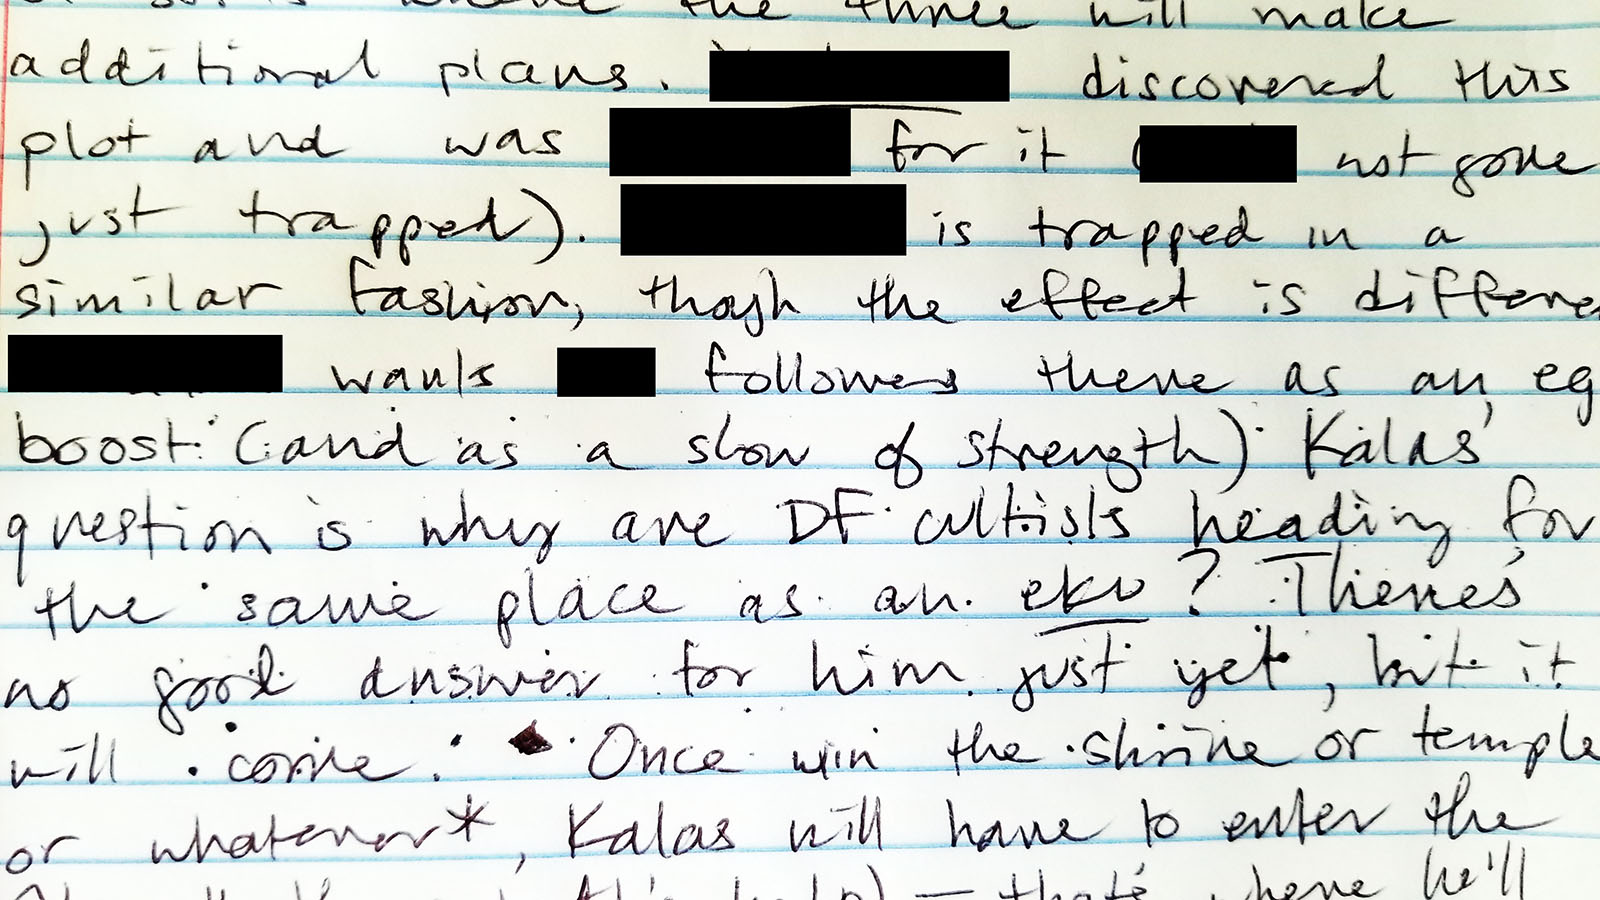 the three will make
additional plans. discovered this
plot and was for it ( not gone
just trapped). is trapped in a
similar fashion, though the effect is differe
wants followers there as an eg
boost (and as a show of strength) Kalas'
question is why are DF cultists heading for
the same place as an eku? There's
no good answer for him just yet, but it
will come. Once w/in the shrine or temple
or whatever*, Kalas will have to enter the
– that's where he'll